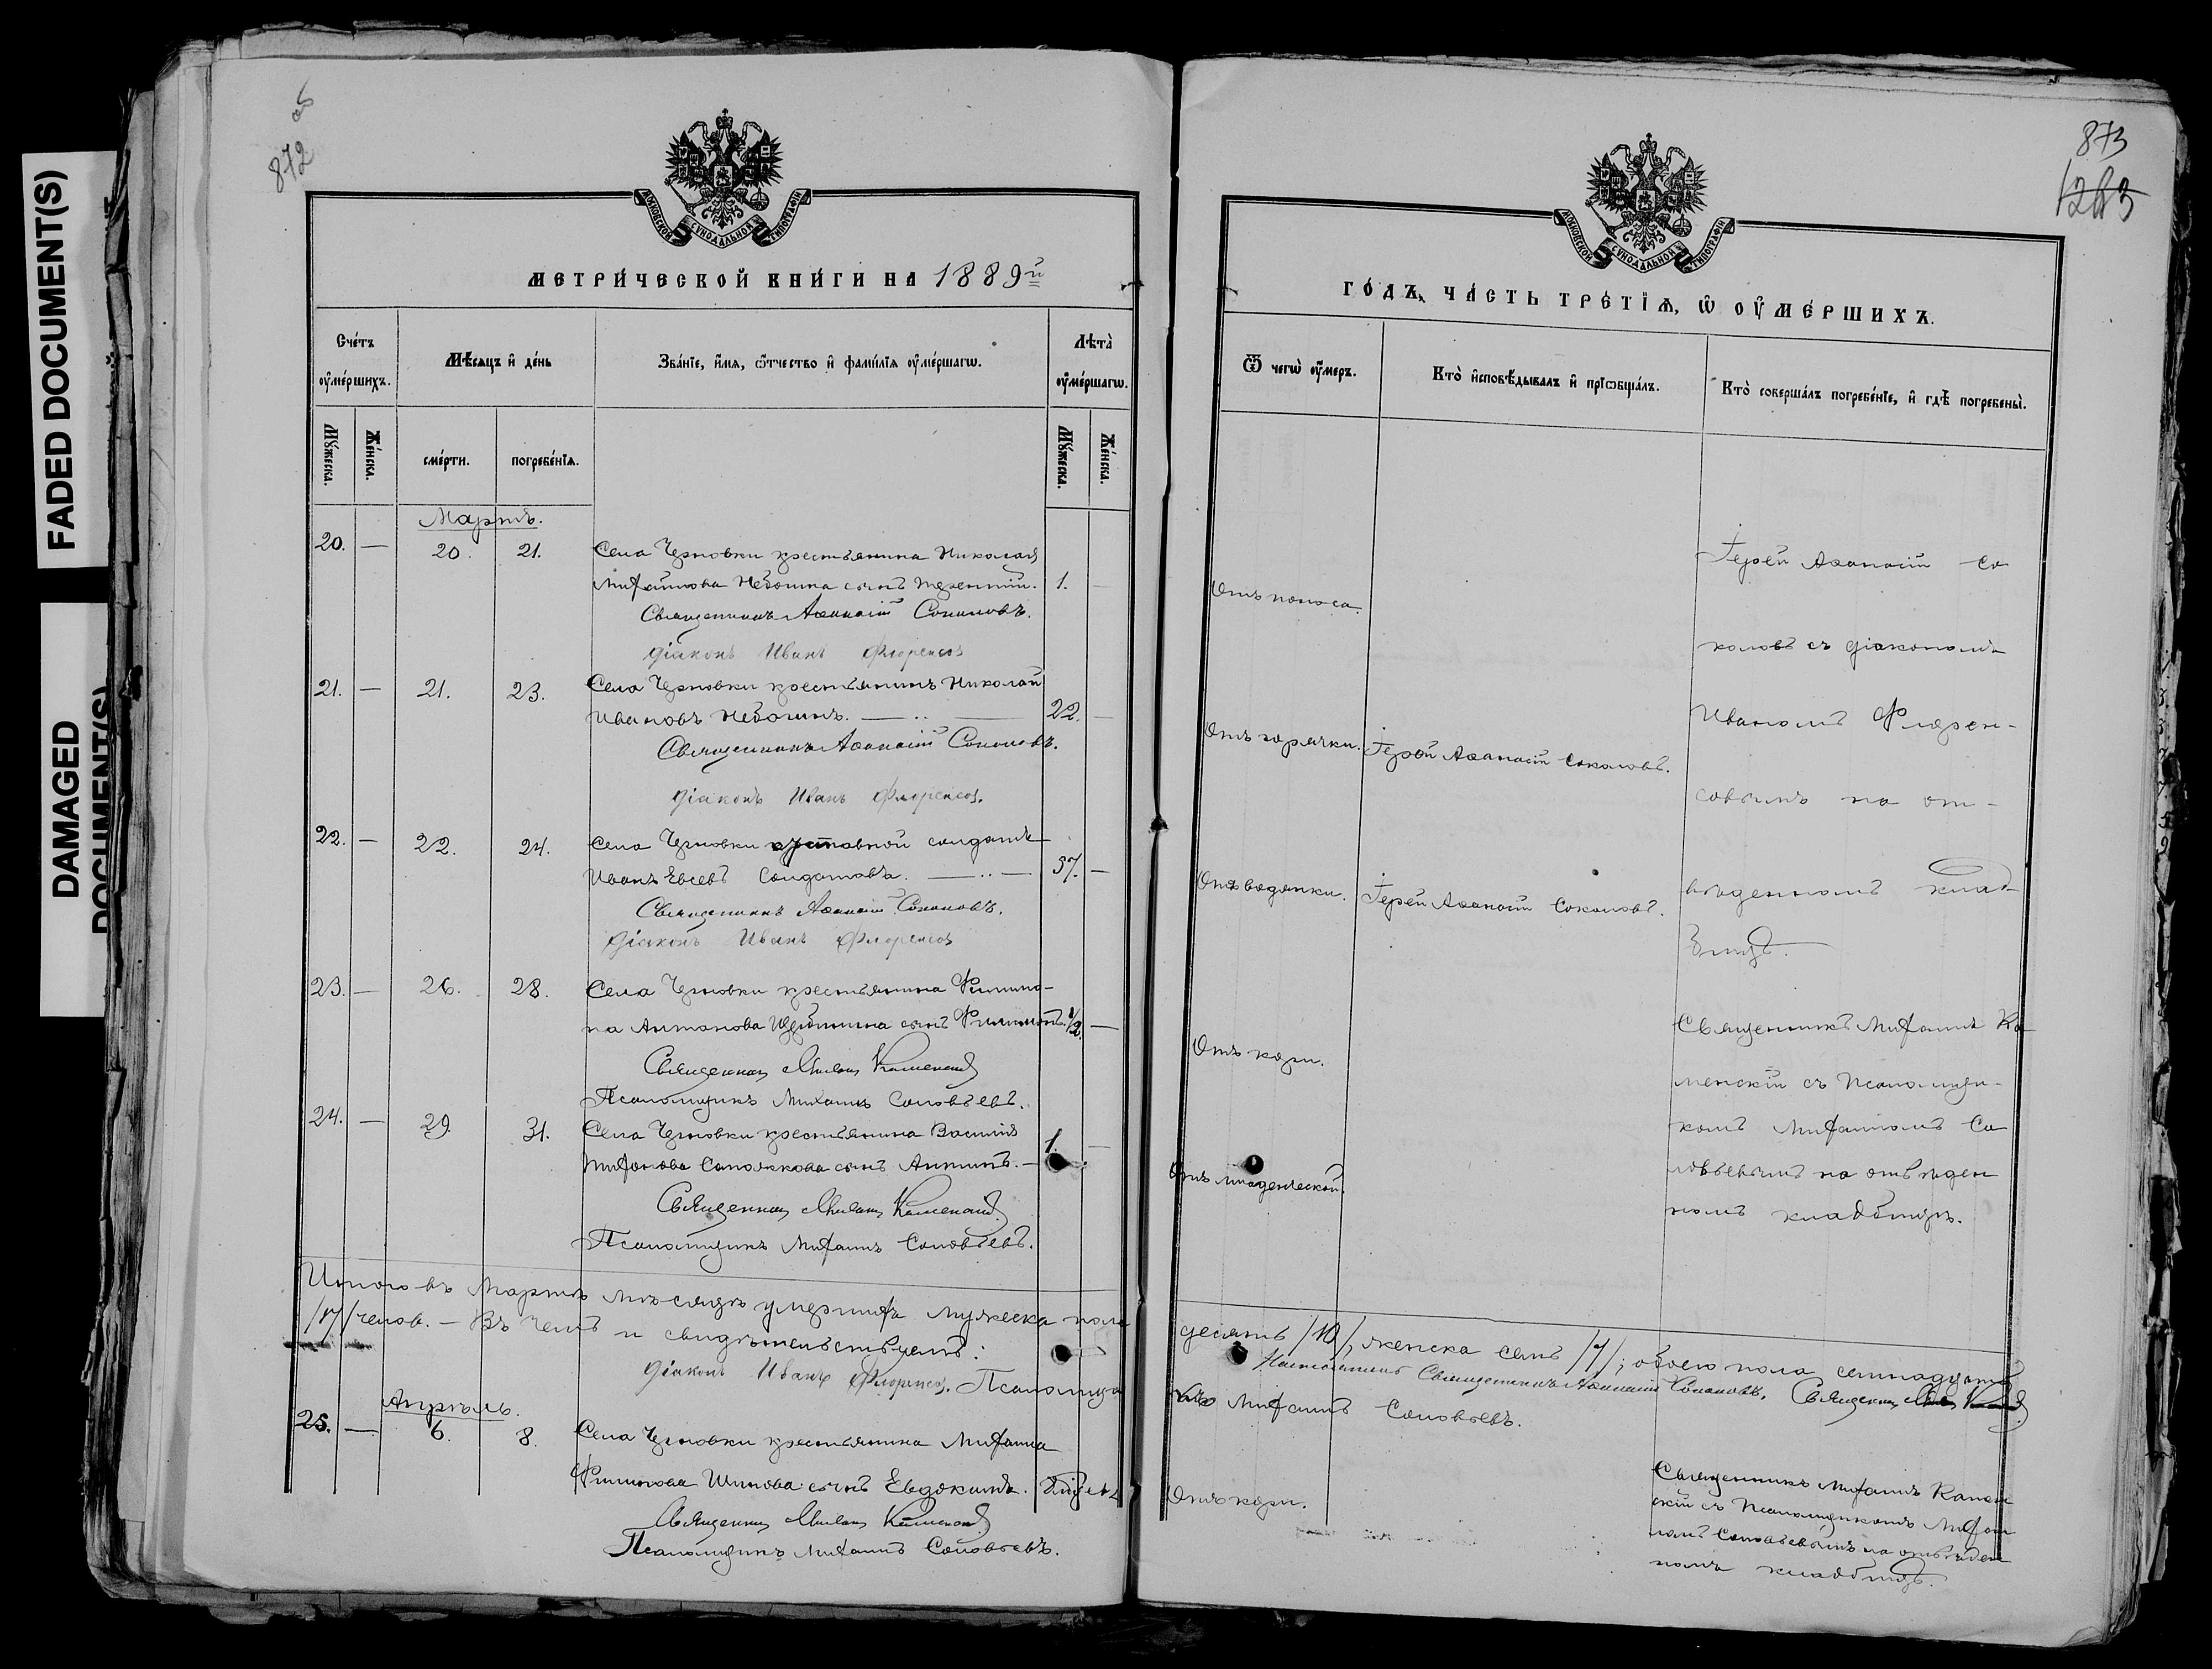 FADED DOCUMENT(S)
DAMAGED
DOCUMENT(S)
872 об
МОСКОВСКОЙ СѴНОДАЛЬНОЙ ТИПОГРАФІИ
МЕТРИ́ЧЕСКОЙ КНИ́ГИ НА 1889й
Сче́тъ ᲂу҆ме́ршихъ.
Мѣ́сяцъ и҆ де́нь
Зва́нїе, и҆́мѧ, ѻ҆́тчество и҆ фами́лїѧ ᲂу҆ме́ршагѡ.
Лѣта̀ ᲂу҆ме́ршагѡ.
Му́жеска.
Же́нска.
сме́рти.
погребе́нїѧ.
Му́жеска.
Же́нска.
Мартъ.
20. — 20. 21. Села Черновки крестьянина Николая
Михайлова сынъ Терентій. 1. —
Священникъ Аѳанасій Соколовъ.
Діаконъ Иванъ Флоренсов
21. — 21. 23. Села Черновки крестьянинъ Николай
Ивановъ 22. —
Священникъ Аѳанасій Соколовъ.
Діаконъ Иванъ Флоренсов.
22. — 22. 24. Села Черновки отставной солдатъ
Иванъ Евсеевъ Солдатовъ. 57. —
Священникъ Аѳанасій Соколовъ.
Діаконъ Иванъ Флоренсов
23. — 26. 28. Села Черновки крестьянина Филипо-
на Антонова сынъ 1/2. —
Священникъ Михаилъ Каменскій
Псаломщикъ Михаилъ Соловьевъ.
24. — 29. 31. Села Черновки крестьянина Василія
Тихонова сынъ Антипъ. — 1. —
Священникъ Михаилъ Каменскій
Псаломщикъ Михаилъ Соловьевъ.
Итого въ Мартѣ мѣсяцѣ умершихъ мужеска пола
/17/ челов. — Въ чемъ и свидѣтельствуемъ:
Діаконъ Иванъ Флоренсов. Псаломщи
Апрѣль.
25. — 6. 8. Села Черновки крестьянина Михаила
Филипова Шилова сынъ Евдокимъ.
Священникъ Михаилъ Каменскій
Псаломщикъ Михаилъ Соловьевъ.
873
1283
МОСКОВСКОЙ СѴНОДАЛЬНОЙ ТИПОГРАФІИ
ГО́ДЪ, ЧА́СТЬ ТРЕ́ТЇѦ, Ѡ҆ ОУ҆МЕ́РШИХЪ.
Ѿ чегѡ̀ ᲂу҆́меръ.
Кто̀ и҆сповѣ́дывалъ и҆ прїѡбща́лъ.
Кто̀ соверша́лъ погребе́нїе, и҆ гдѣ̀ погребены̀.
Отъ поноса.
Іерей Аѳанасій Со
коловъ съ діакономъ
Иваномъ Флорен-
совымъ на от-
Отъ горячки. Іерей Аѳанасій Соколовъ.
Отъ водянки. Іерей Аѳанасій Соколовъ.
веденномъ клад
бищѣ.
Отъ кори.
Священникъ Михаилъ Ка
менскій съ псаломщи-
комъ Михаиломъ Со
ловьевымъ на отведен
номъ кладбищѣ.
Отъ младенческой.
десять /10/, женска семь /7/; обоего пола семнадцать
Священникъ Аѳанасій Соколовъ. Священникъ
къ Михаилъ Соловьевъ.
Отъ кори.
Священникъ Михаилъ Камен
скій съ псаломщикомъ Михаи
ломъ Соловьевымъ на отведен
номъ кладбищѣ.